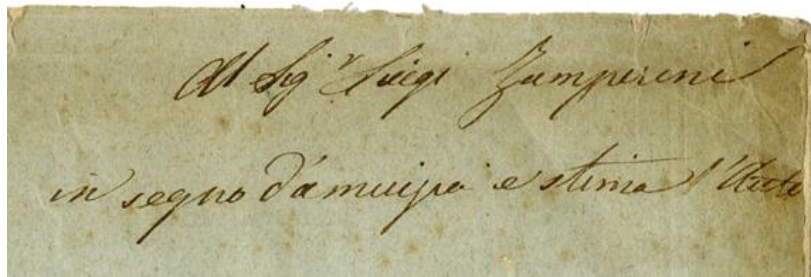 Al Sigr Luigi Zamperini
in segno d'amicizia e stima l'Aut